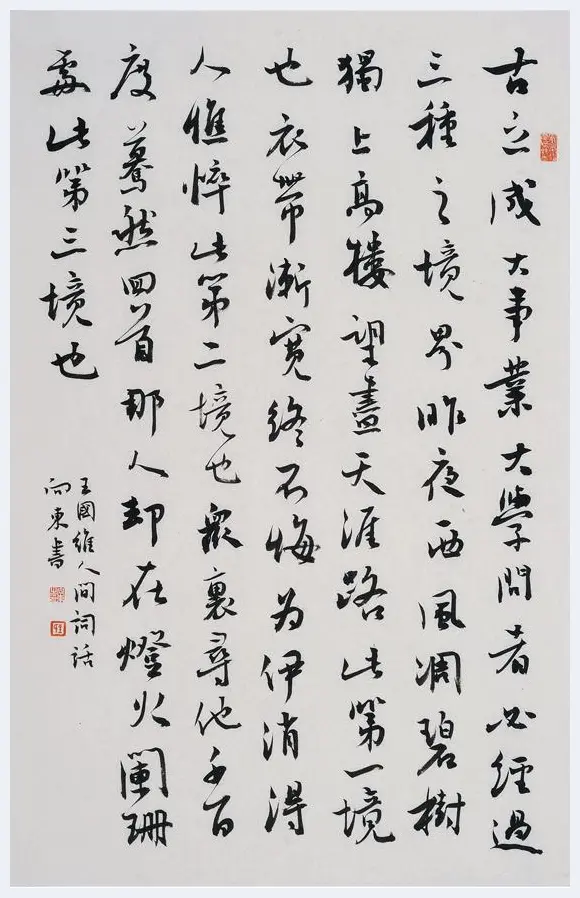 古之成大事業大學問者必經過
三種之境界昨夜西風凋碧樹
獨上高樓望盡天涯路此第一境
也衣帶漸寬終不悔为伊消得
人憔悴此第二境也眾裏尋他千百
度驀然回首那人却在燈火闌珊
處此第三境也
王國維人間詞話
向東書